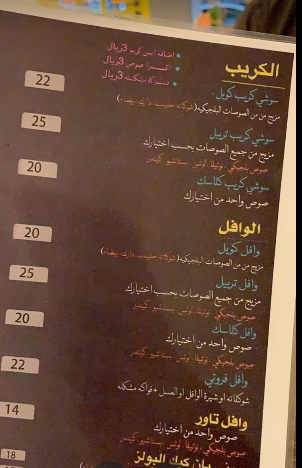 اضافة ايس كريم 3ريال
اكسترا صوص 3ريال
فواكه مشكله 3ريال
الكريب
سوشي كريب كوبل
22
مزيج من من الصوصات البلجيكيه(شوكلاته حليب دارك بيضاء)
سوشي كريب تريبل
25
مزيج من جميع الصوصات بحسب اختيارك
صوص بلجيكي نوتيلا لوتس بستاشيو كيندر
سوشي كريب كلاسك
20
صوص واحد من اختيارك
الوافل
وافل كوبل
20
مزيج من من الصوصات البلجيكيه(شوكلاته حليب دارك بيضاء)
وافل تريبل
25
مزيج من جميع الصوصات بحسب اختيارك
صوص بلجيكي نوتيلا لوتس بستاشيو كيندر
وافل كلاسك
20
صوص واحد من اختيارك
صوص بلجيكي نوتيلا لوتس بستاشيو كيندر
وافل فروتي
22
شوكلاته او شيرة الوافل او العسل +فواكه مشكله
وافل تاور
14
صوص واحد من اختيارك
صوص بلجيكي نوتيلا لوتس بستاشيو كيندر
بان كيك البولز
18